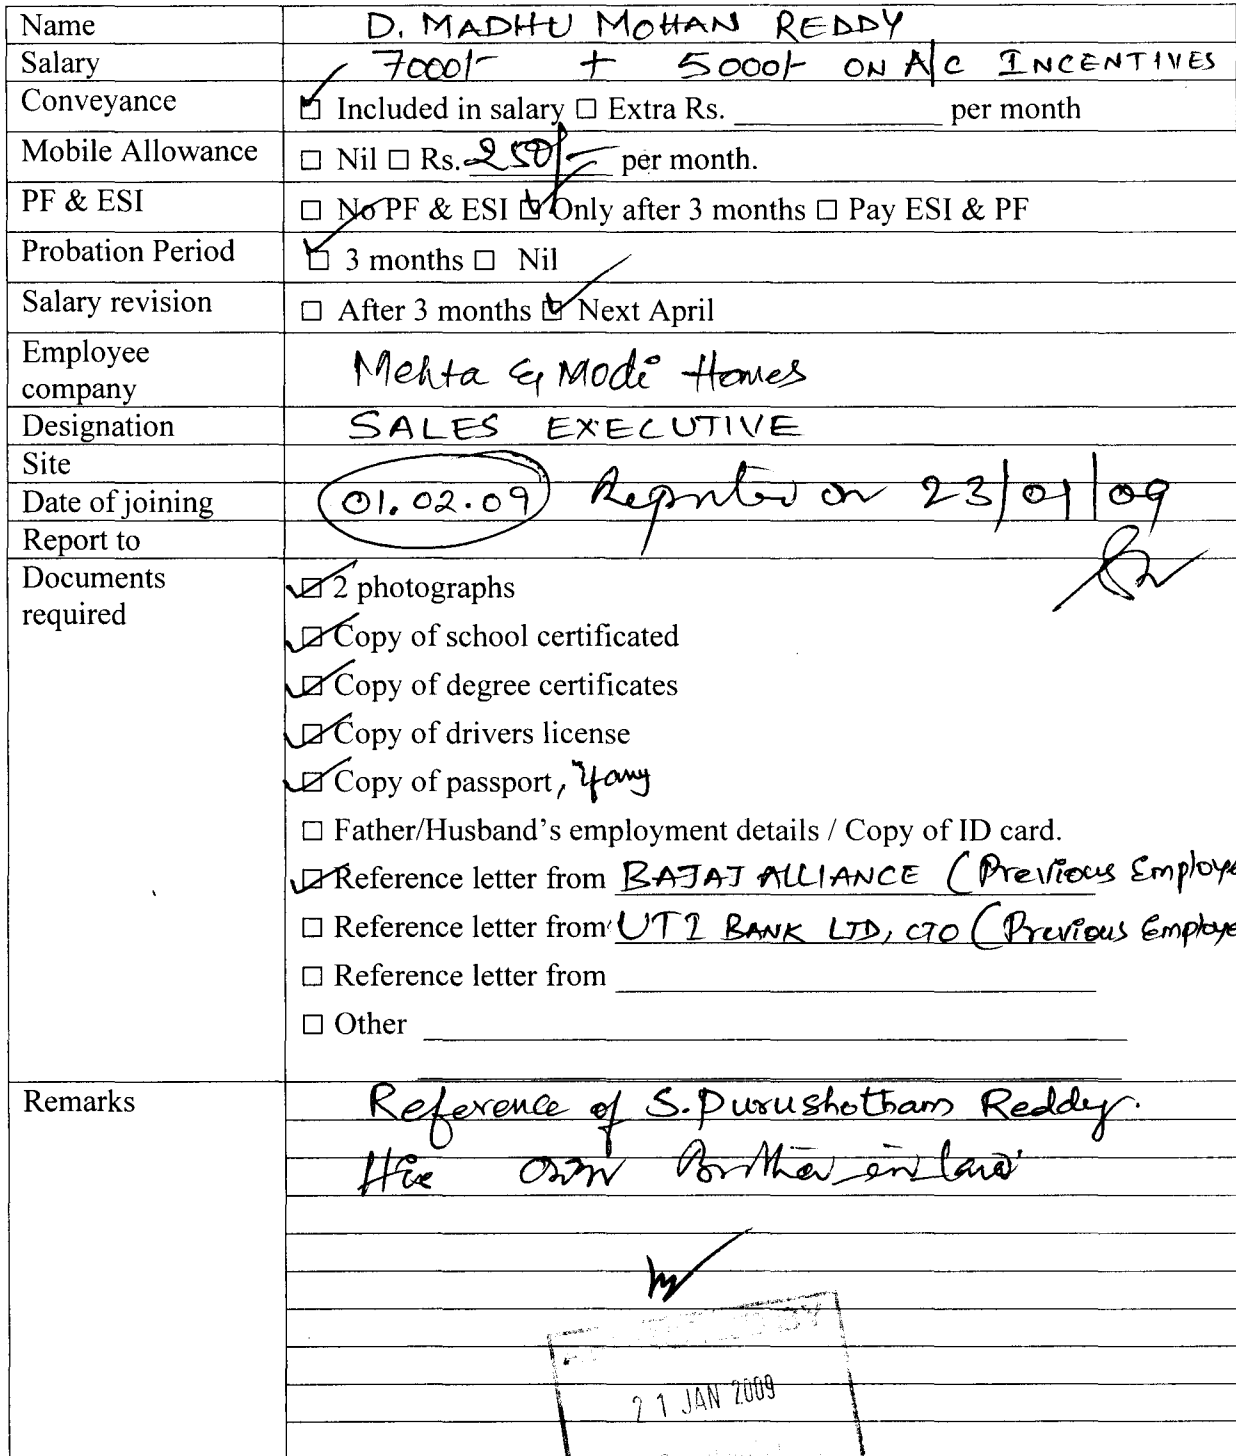 Name D. MADHU MOHAN REDDY
Salary 7000/- + 5000/- ON A/C INCENTIVES
Conveyance ☑ Included in salary ☐ Extra Rs. ____________ per month
Mobile Allowance ☐ Nil ☐ Rs. 250/- per month.
PF & ESI ☐ No PF & ESI ☑ Only after 3 months ☐ Pay ESI & PF
Probation Period ☑ 3 months ☐ Nil
Salary revision ☐ After 3 months ☑ Next April
Employee
company Mehta & Modi Homes
Designation SALES EXECUTIVE
Site
Date of joining 01.02.09 Reported on 23/01/09
Report to
Documents
required
☑ 2 photographs
☑ Copy of school certificated
☑ Copy of degree certificates
☑ Copy of drivers license
☑ Copy of passport, if any
☐ Father/Husband's employment details / Copy of ID card.
☑ Reference letter from BAJAJ ALLIANCE (Previous Employe
☐ Reference letter from UTI BANK LTD, CTO (Previous Employe
☐ Reference letter from ____________
☐ Other ____________
Remarks Reference of S. Purushotham Reddy.
His own Brother in law
21 JAN 2009